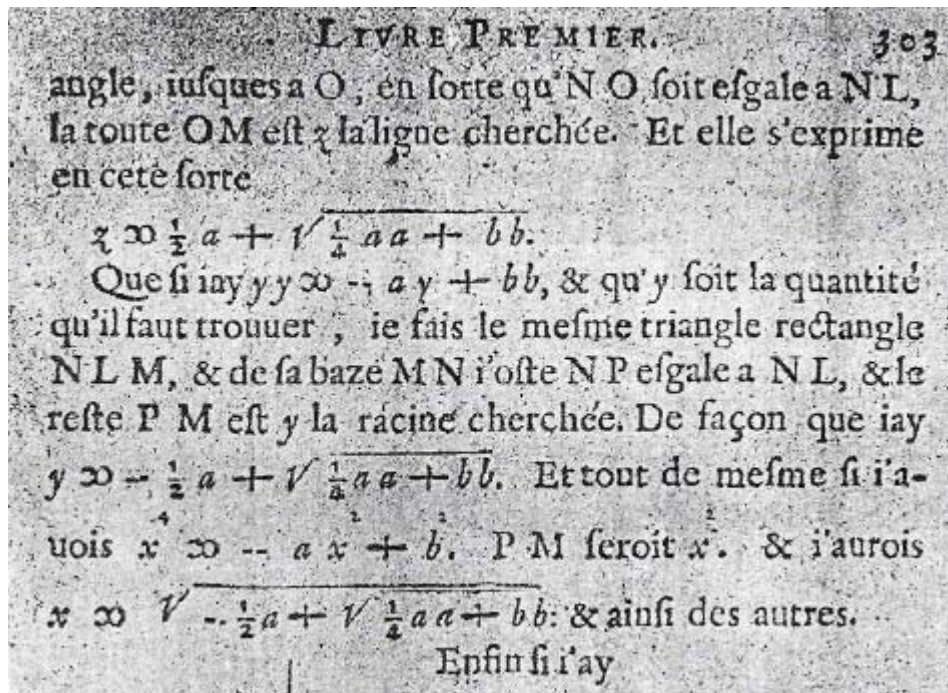 LIVRE PREMIER. 303
angle, iuſques a O, en ſorte qu'N O ſoit eſgale a N L,
la toute OM eſt z la ligne cherchée. Et elle s'exprime
en cete ſorte
z ∞ ½ a + √ ¼ aa + bb.
Que ſi iay yy ∞ -- ay + bb, & qu'y ſoit la quantité
qu'il faut trouuer, ie fais le meſme triangle rectangle
N L M, & de ſa baze M N i'oſte N P eſgale a N L, & le
reſte P M eſt y la racine cherchée. De façon que iay
y ∞ -- ½ a + √ ¼ aa + bb. Et tout de meſme ſi i'a-
uois x⁴ ∞ -- a x² + b². P M ſeroit x². & i'aurois
x ∞ √ -- ½ a + √ ¼ aa + bb: & ainſi des autres.
Enfin ſi i'ay